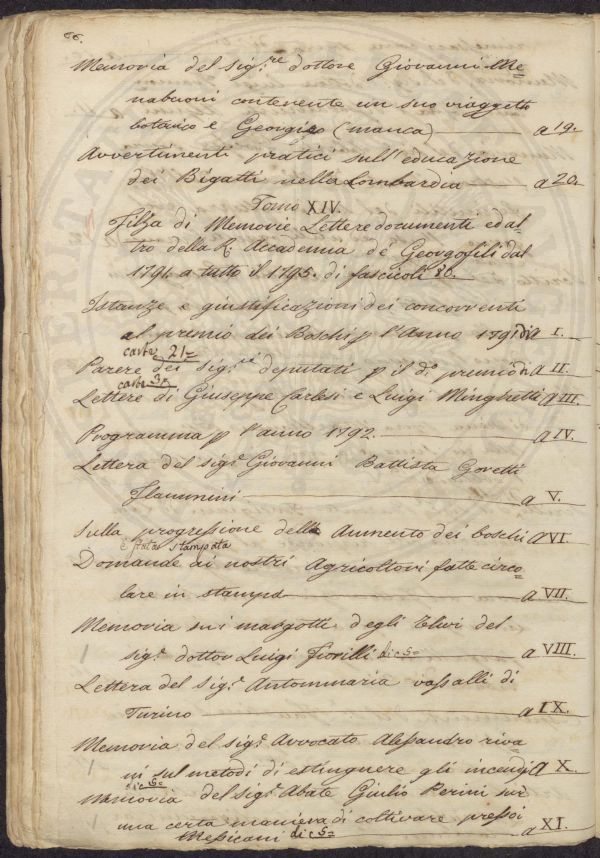 66.
Memoria del sig.re dottore Giovanni Me=
nabuoni contenente un suo viaggetto
botanico e Georgico (manca) — a 19.
Avvertimenti pratici sull'educazione
dei Bigatti nella Lombardia — a 20
Tomo XIV.
Filza di Memorie Lettere documenti ed al=
tro della R. Accademia de Georgofili dal
1791. a tutto il 1795. di fascicoli 86.
Istanze e giustificazioni dei concorrenti
al premio dei Boschi p l'Anno 1791 di a I.
carte 21=
Parere dei sig.ri deputati p il d.o premio di a II.
carte 3=
Lettere di Giuseppe Carlesi e Luigi Minghetti a III.
Programma p l'anno 1792. — a IV.
Lettera del sig.r Giovanni Battista Goretti
Flamminii — a V.
Sulla progressione della Aumento dei boschi a VI.
è stata stampata
Domande ai nostri Agricoltori fatte circo=
lare in stampa — a VII.
Memoria sui margotti degli Ulivi del
sig.r dottor Luigi Fiorilli di c 5= a VIII.
Lettera del sig.r Antommaria Vassalli di
Turino — a IX.
Memoria del sig.r Avvocato Alessandro riva=
ni sul metodi di estinguere gli incendj a X.
di c 6=
Memoria del sig.r Abate Giulio Perini sur
una certa maniera di coltivare presso i
Messicani di c 5= a XI.